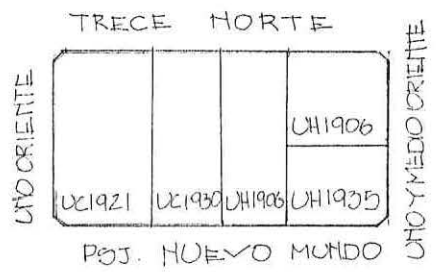 TRECE NORTE
UNO ORIENTE
UNO Y MEDIO ORIENTE
UH1906
UC1921
UC1930
UH1906
UH1935
PSJ. NUEVO MUNDO